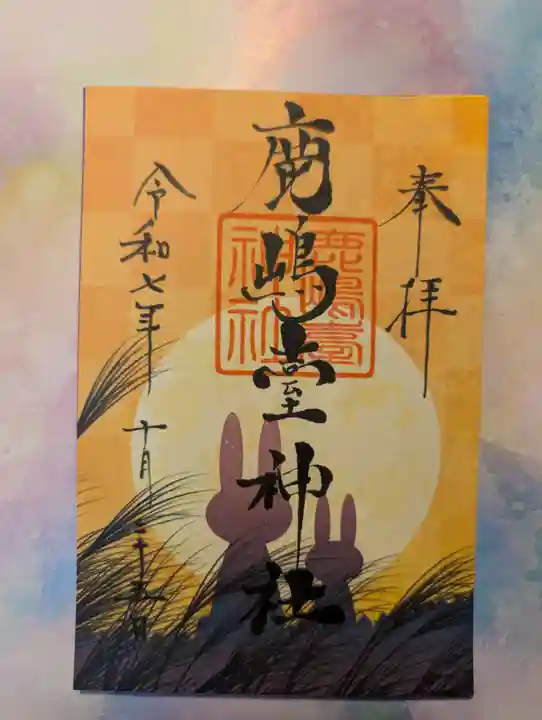 奉拝
鹿嶋臺神社
鹿嶋臺
神社
令和七年十月二十九日